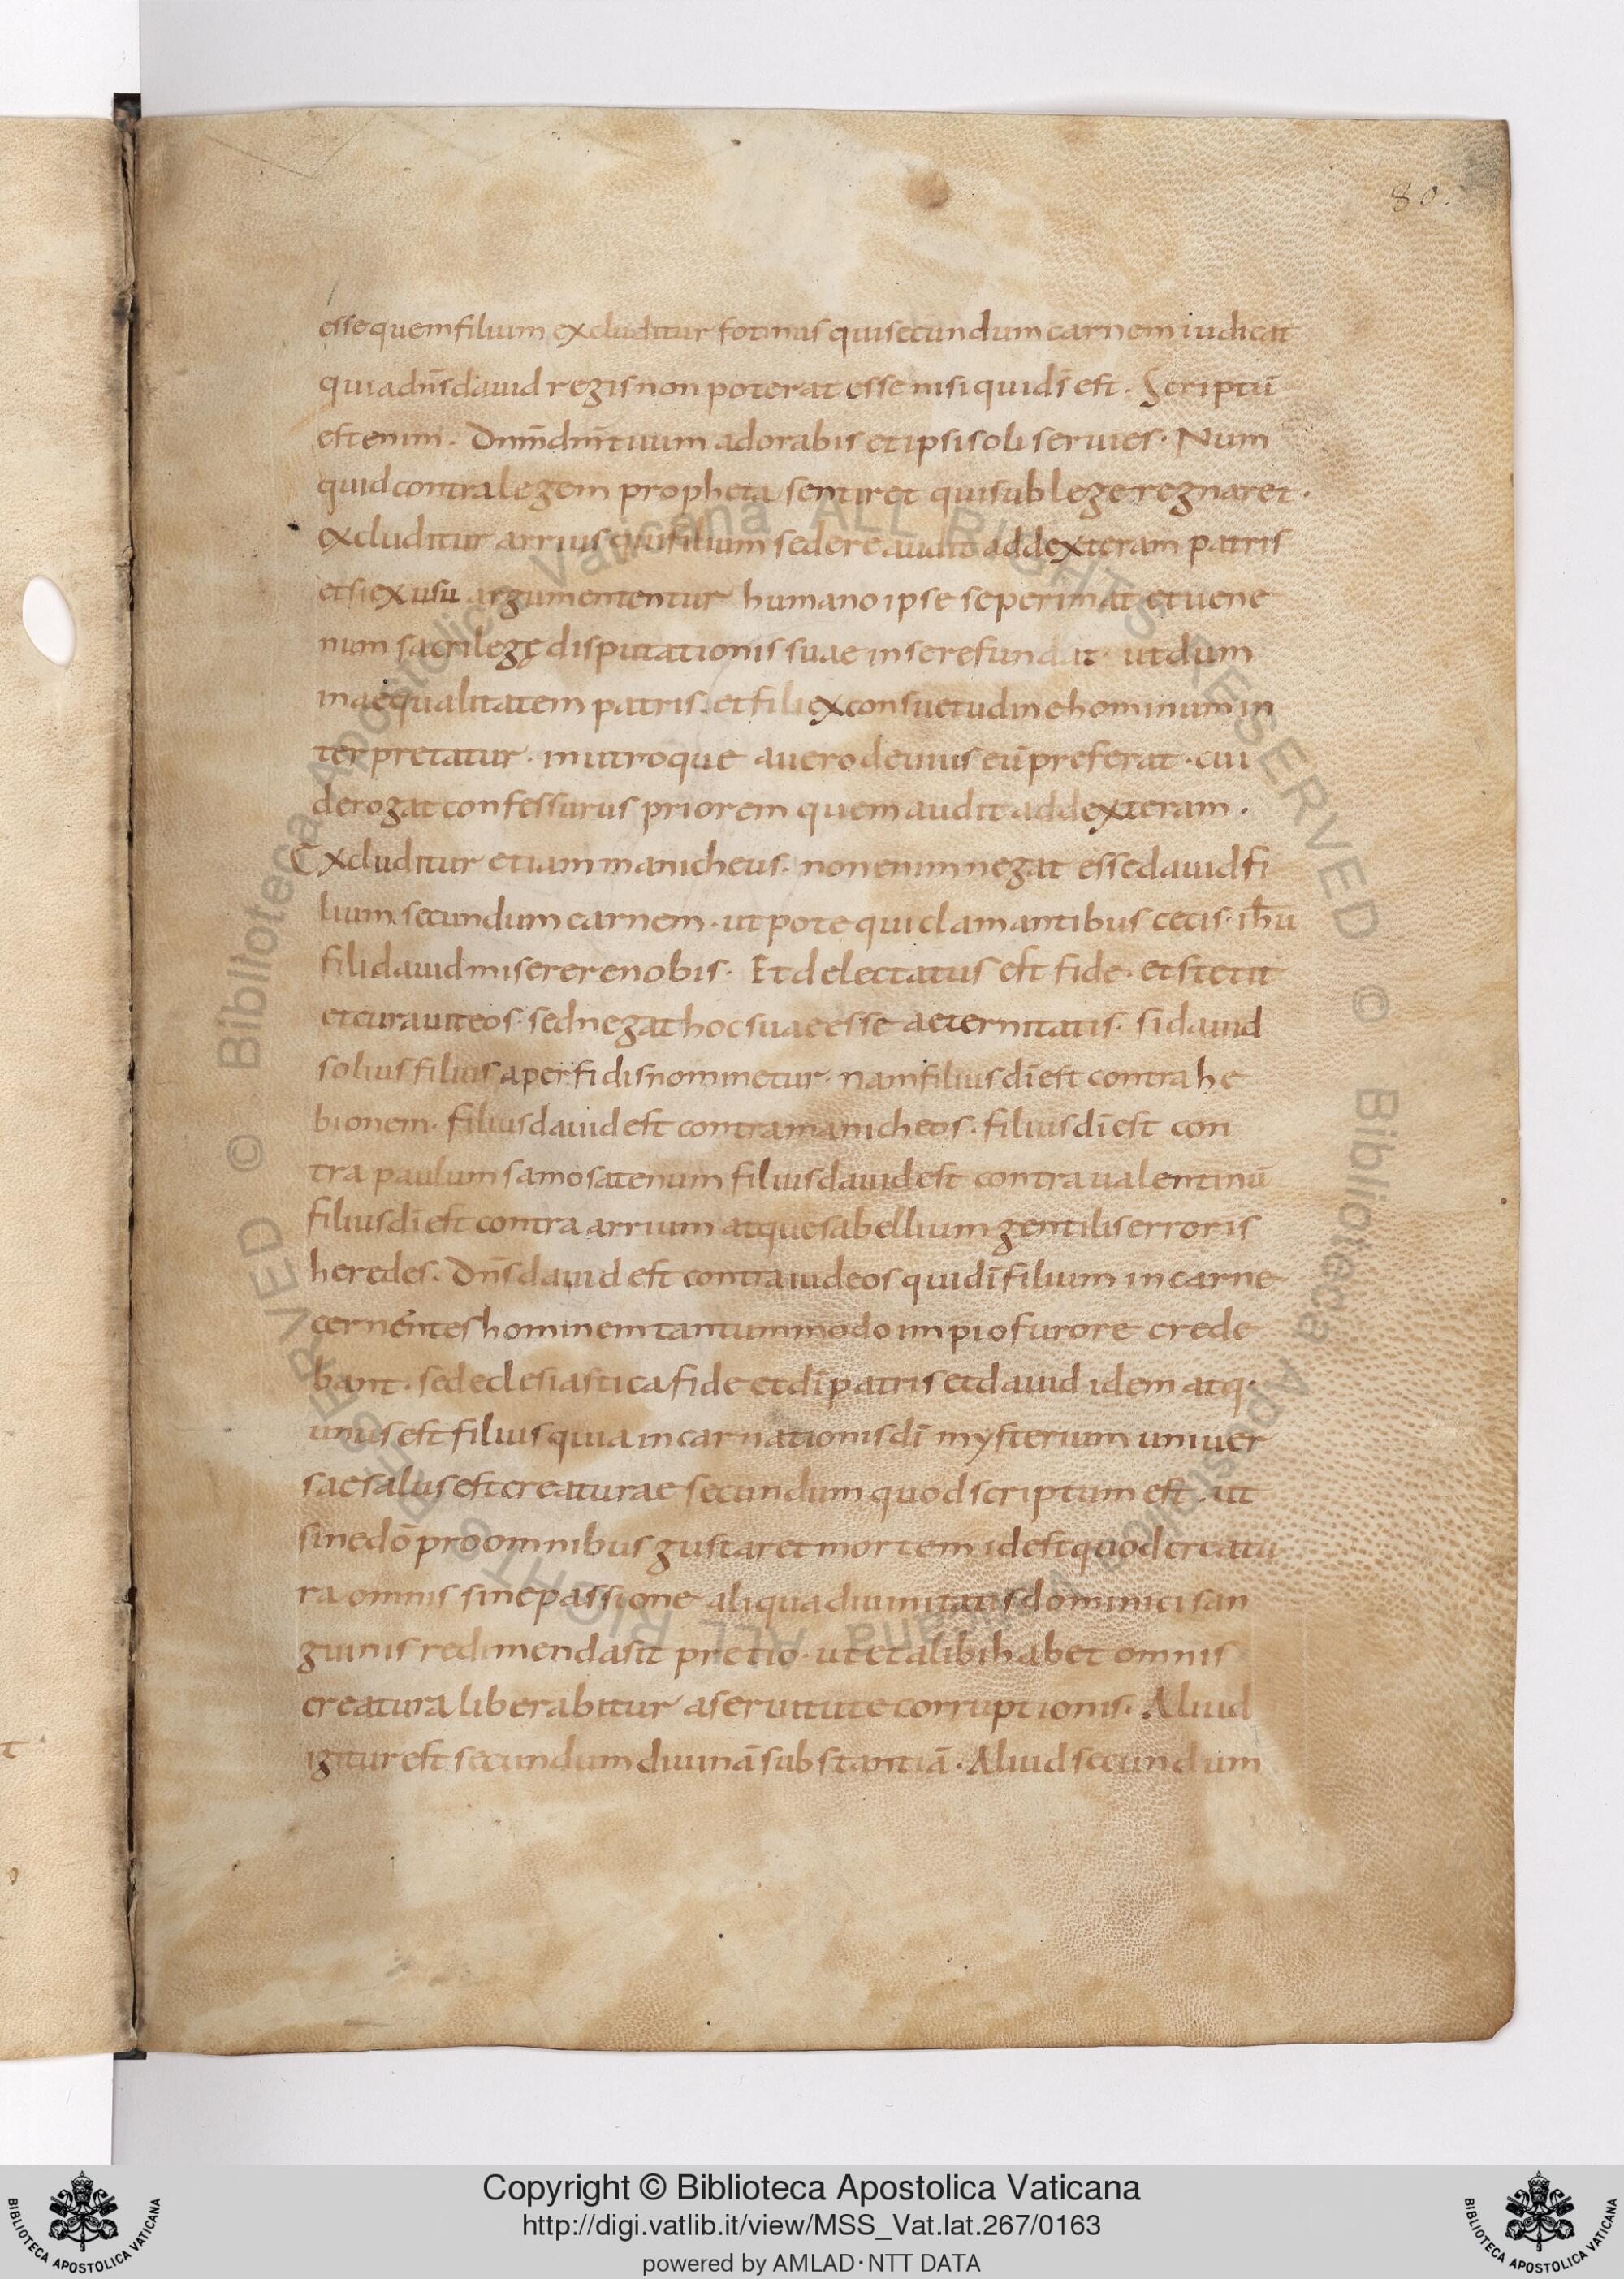 80.
esse quem filium excluditur fotinus qui secundum carnem iudicat
quia dn̄s dauid regis non poterat esse nisi qui dī est. Scriptū
est enim. Dnm̄ dm̄ tuum adorabis et ipsi soli seruies. Num
quid contra legem propheta sentiret qui sub lege regnaret.
excluditur arrius qui filium sedere audit ad dexteram patris
et si ex usu argumententur humano ipse se perimat et uene
num sacrilegę disputationis suae in se refundat. ut dum
inaequalitatem patris. et fili ex consuetudine hominum in
terpretatur. in utroque a uero deuius eū preferat. cui
derogat confessurus priorem quem audit ad dexteram.
Excluditur etiam manicheus. non enim negat esse dauid fi
lium secundum carnem. ut pote qui clamantibus cecis. ih̄u
fili dauid miserere nobis. Et delectatus est fide. et stetit
et curauit eos. sed negat hoc suae esse aeternitatis. si dauid
solius filius a perfidis nominetur. nam filius dī est contra he
bionem. filius dauid est contra manicheos. filius dī est con
tra paulum samosatenum filius dauid est contra ualentinū
filius dī est contra arrium atque sabellium gentilis erroris
heredes. Dn̄s dauid est contra iudeos qui dī filium in carne
cernentes hominem tantummodo impio furore crede
bant. sed eclesiastica fide et dī patris et dauid idem atq.
unus est filius quia incarnationis dī mysterium uniuer
sae salus est creaturae secundum quod scriptum est. ut
sine dō pro omnibus gustaret mortem id est quod creatu
ra omnis sine passione aliqua diuinitatis dominici san
guinis redimenda sit pretio. ut et alibi habet omnis
creatura liberabitur a seruitute corruptionis. Aliud
igitur est secundum diuinā substantiā. Aliud secundum
Copyright © Biblioteca Apostolica Vaticana
http://digi.vatlib.it/view/MSS_Vat.lat.267/0163
powered by AMLAD·NTT DATA